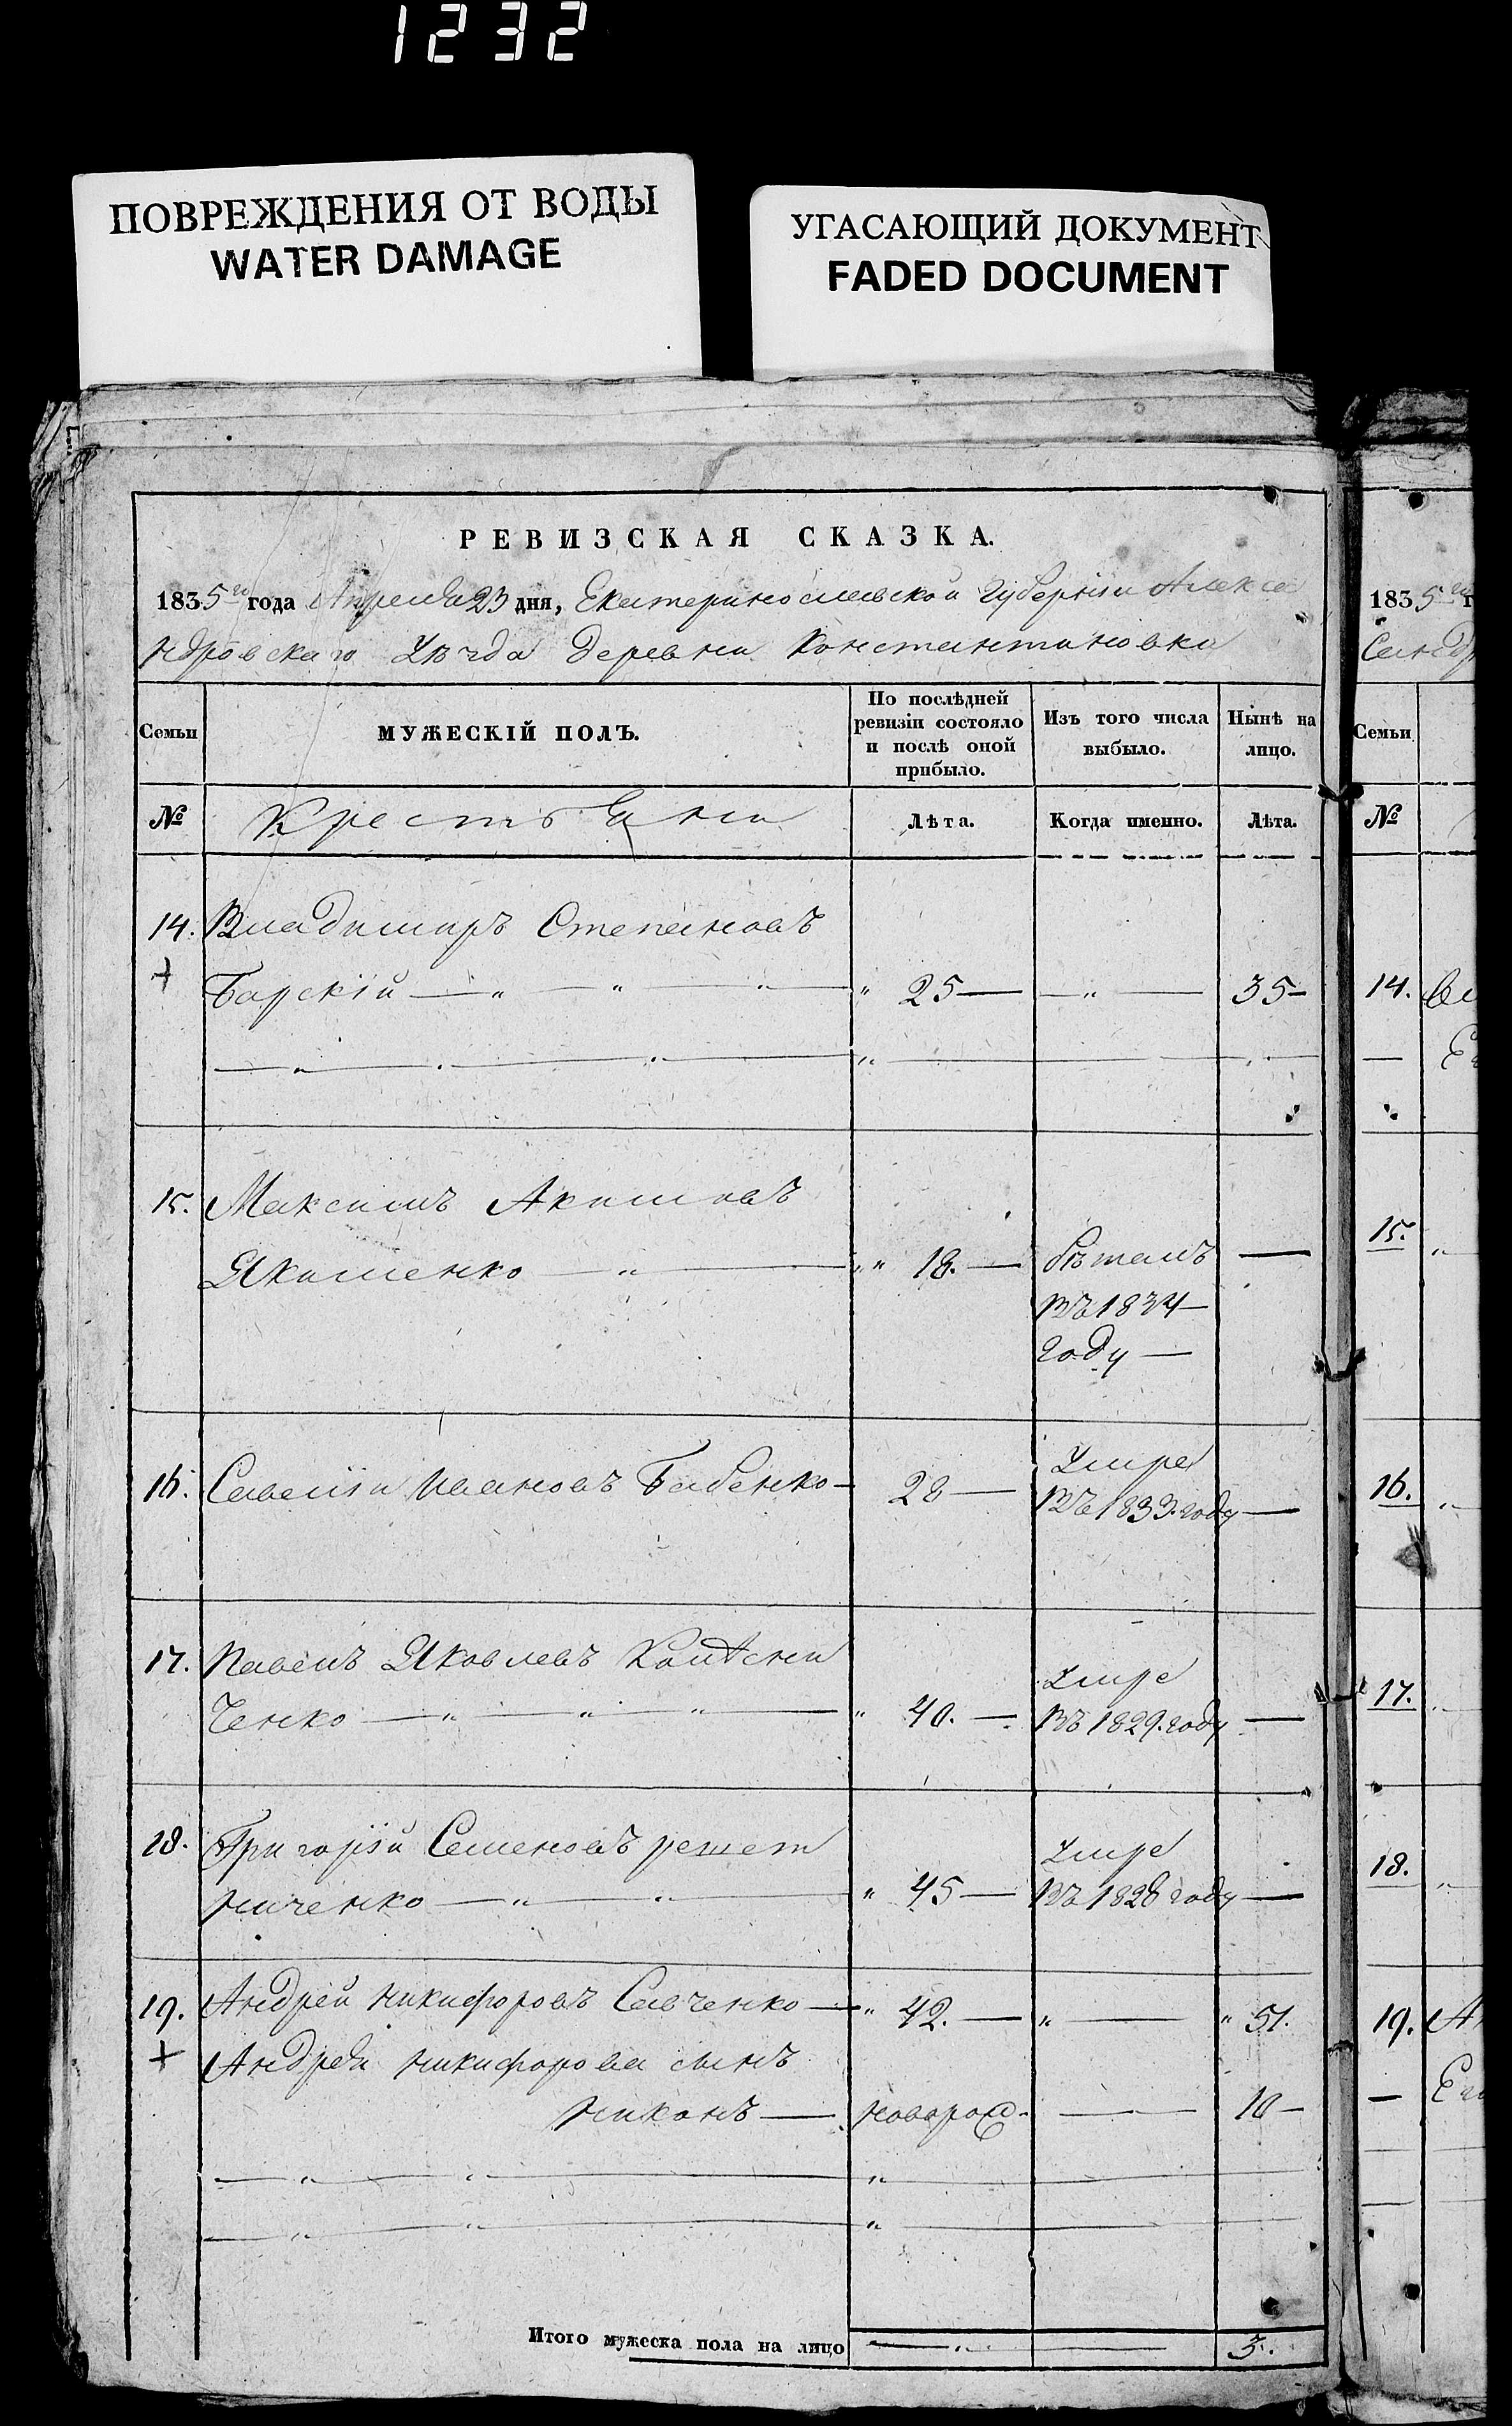 1232
ПОВРЕЖДЕНИЯ ОТ ВОДЫ
WATER DAMAGE
УГАСАЮЩИЙ ДОКУМЕНТ
FADED DOCUMENT
РЕВИЗСКАЯ СКАЗКА.
1835го года Апреля 23 дня, Екатеринославской Губернии Алекса
ндровскаго Уѣзда деревни Константиновки
Семьи МУЖЕСКІЙ ПОЛЪ. По послѣдней ревизіи состояло и послѣ оной прибыло. Изъ того числа выбыло. Нынѣ на лицо.
№ Крестьяни Лѣта. Когда именно. Лѣта.
14. Владимиръ Степановъ
Барскій 25 — 35
15. Максимъ Акимовъ
Якименко 18. —
въ 1834
году
16. Савелій Ивановъ Бабенко 28 Умре
въ 1833 году —
17. Павелъ Яковлевъ
ченко 40. Умре
въ 1829. году —
18. Григорій Семеновъ решет
ниченко 45 Умре
въ 1828 году —
19. Андрей Никифоровъ Савченко 42. — 51.
Андрея Никифорова сынъ
Никонъ — новорож. — 10
Итого мужеска пола на лицо 3.
1835го г
Семьи
№
14.
15.
16.
17.
18.
19.